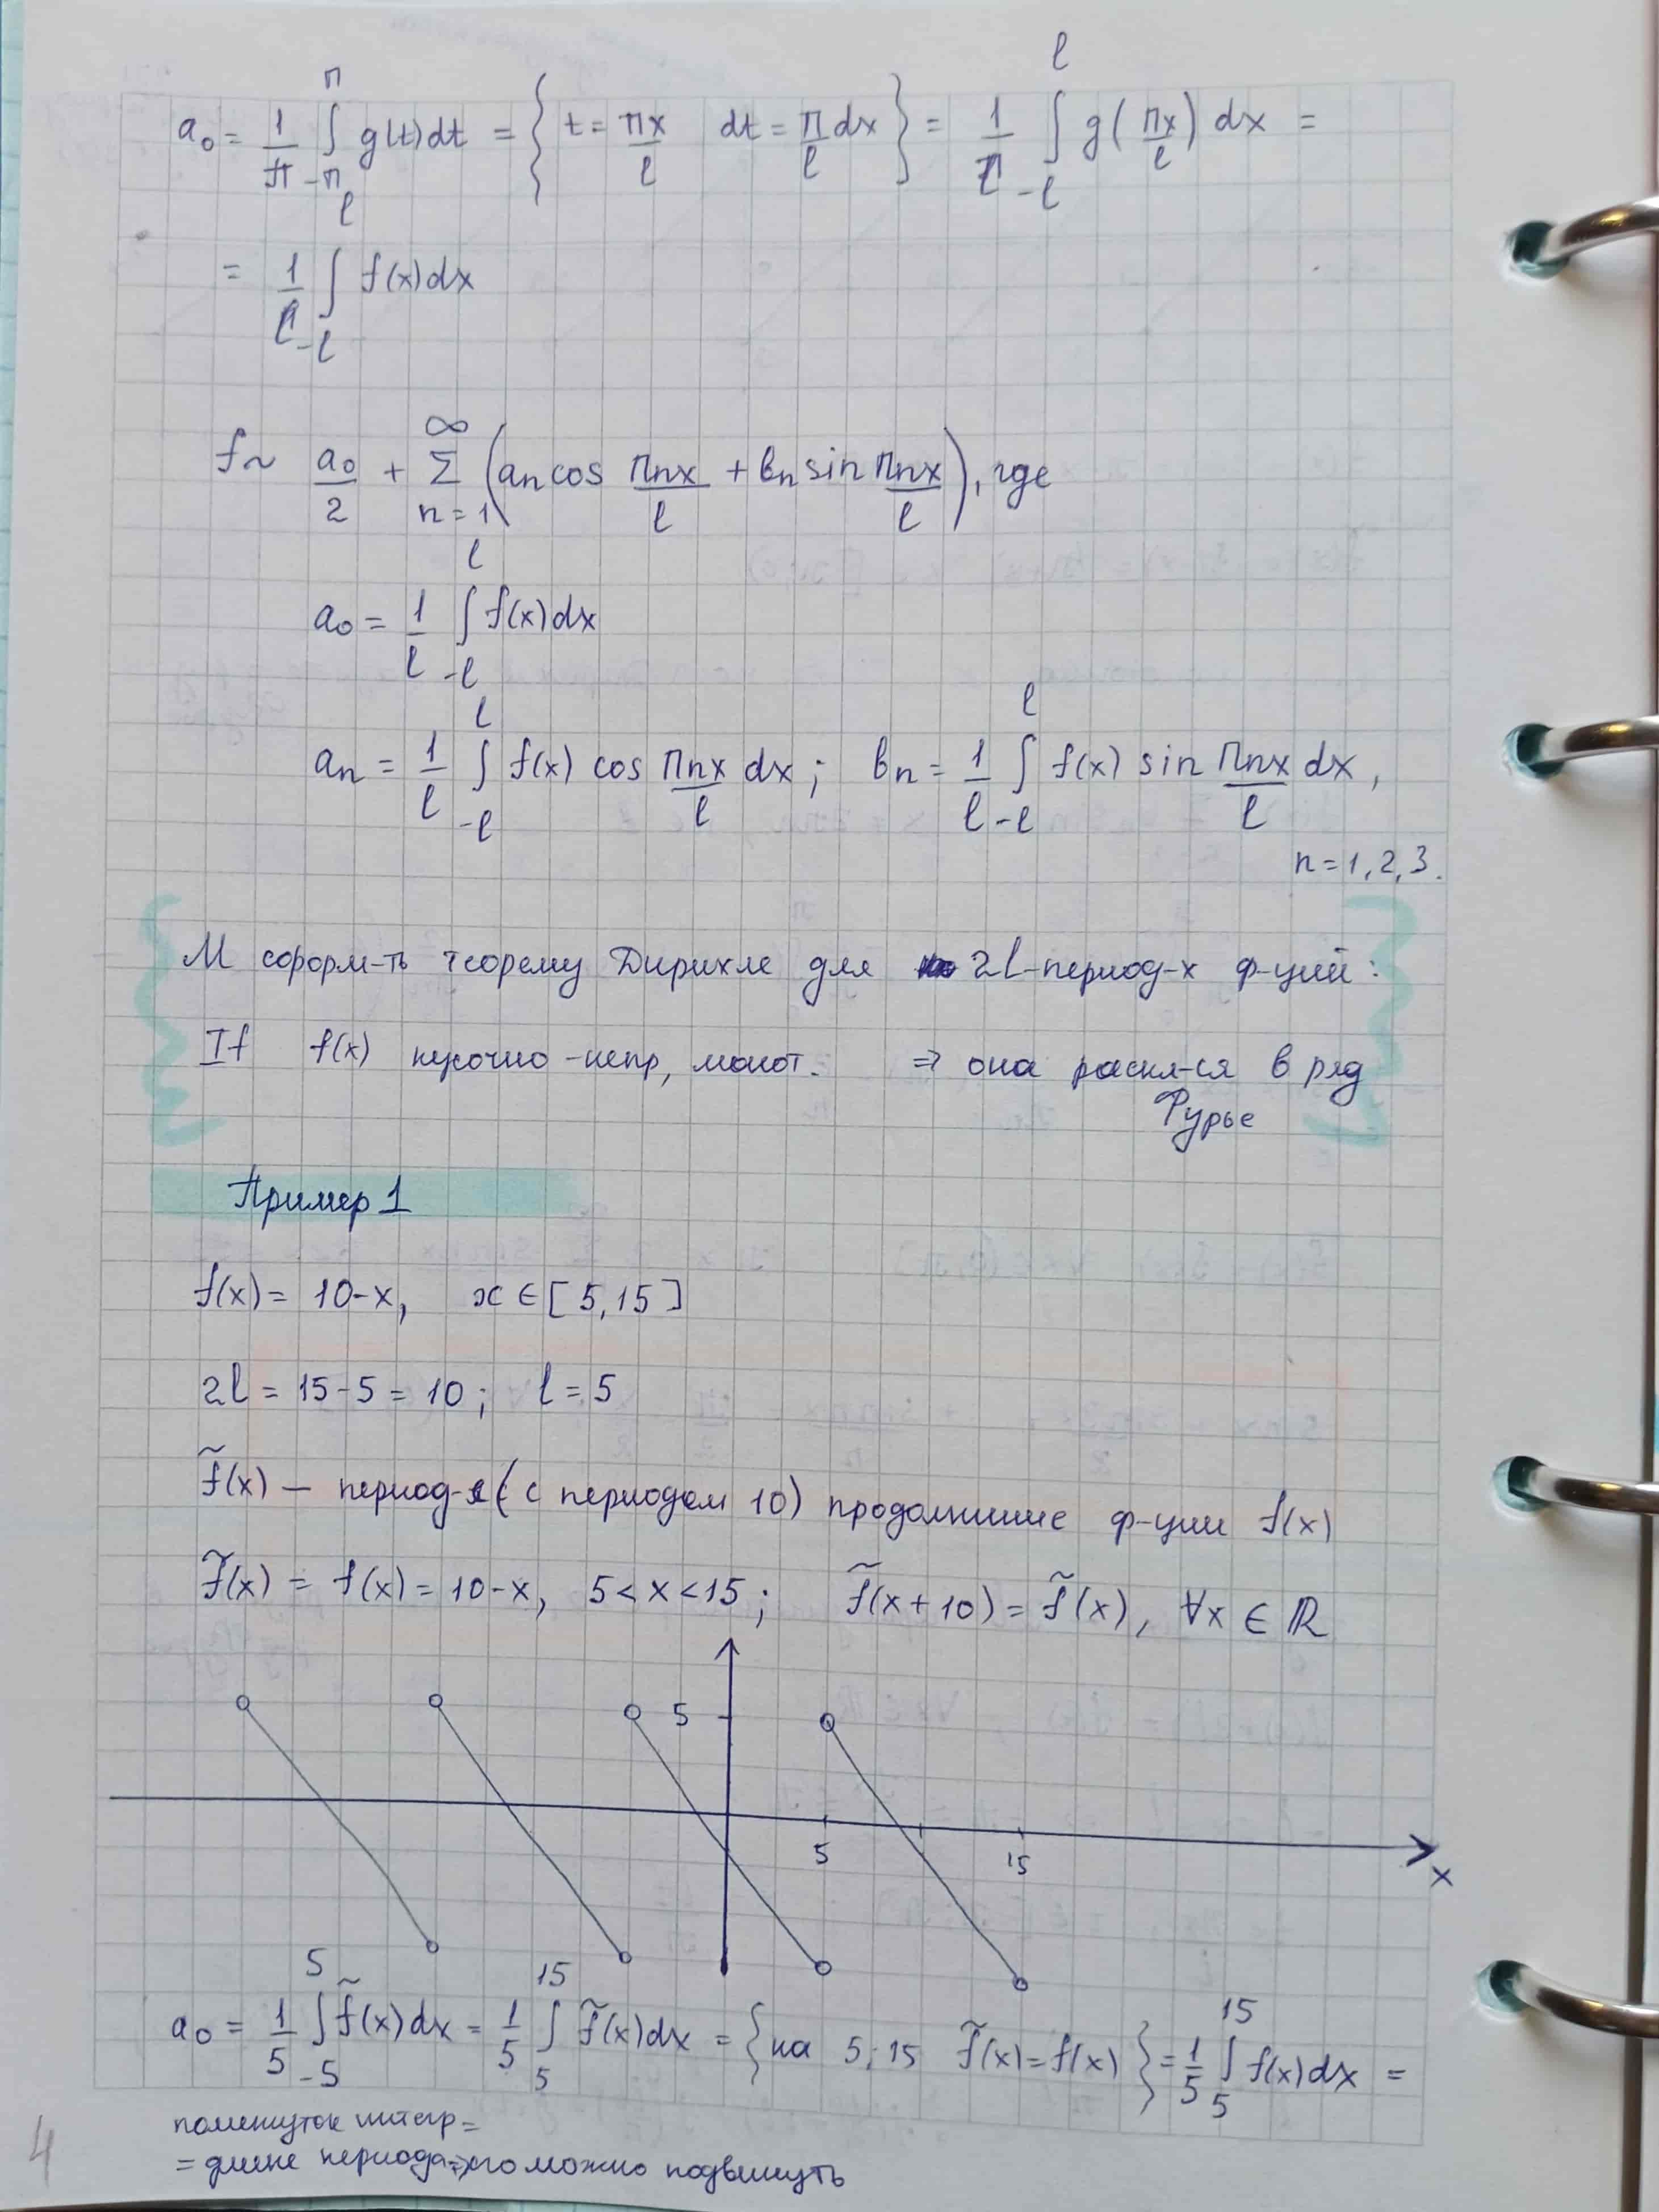 a₀ = 1/π ∫_{-π}^{π} g(t)dt = { t = πx/l dt = π/l dx } = 1/l ∫_{-l}^{l} g(πx/l) dx =
= 1/l ∫_{-l}^{l} f(x)dx
f ~ a₀/2 + Σ_{n=1}^{∞} (aₙ cos πnx/l + bₙ sin πnx/l), где
a₀ = 1/l ∫_{-l}^{l} f(x)dx
aₙ = 1/l ∫_{-l}^{l} f(x) cos πnx/l dx; bₙ = 1/l ∫_{-l}^{l} f(x) sin πnx/l dx,
n = 1, 2, 3.
М сформ-ть теорему Дирихле для 2l-период-х ф-ций:
If f(x) кусочно-непр, монот. ⇒ она раскл-ся в ряд
Фурье
Пример 1
f(x) = 10-x, x ∈ [5,15]
2l = 15-5 = 10; l = 5
f̃(x) — период-я (с периодом 10) продолжение ф-ции f(x)
f̃(x) = f(x) = 10-x, 5 < x < 15; f̃(x+10) = f̃(x), ∀x ∈ ℝ
5
5 15
x
a₀ = 1/5 ∫_{-5}^{5} f̃(x)dx = 1/5 ∫_{5}^{15} f̃(x)dx = { на 5; 15 f̃(x) = f(x) } = 1/5 ∫_{5}^{15} f(x)dx =
помежуток интегр =
= длине периода ⇒ его можно подвинуть
4